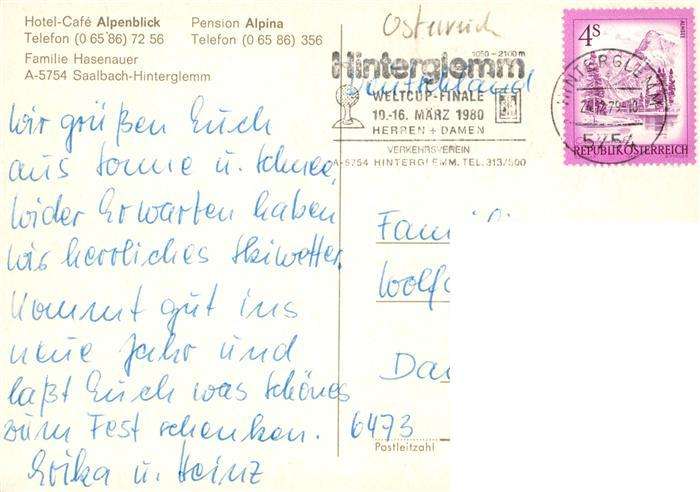 Hotel-Café Alpenblick Pension Alpina
Telefon (0 65 86) 72 56 Telefon (0 65 86) 356
Familie Hasenauer
A-5754 Saalbach-Hinterglemm
Wir grüßen Euch
aus Sonne u. Schnee,
Wider Erwarten haben
wir herrliches Skiwetter.
Kommt gut ins
neue Jahr und
laßt Euch was Schönes
zum Fest schenken.
Erika u. Heinz
Österreich
1050-2100m
Hinterglemm
Deutschland
WELTCUP-FINALE
19.-16. MÄRZ 1980
HERREN + DAMEN
VERKEHRSVEREIN
A-5754 HINTERGLEMM. TEL. 313/500
4S
HINTERGLEMM
5754
REPUBLIK ÖSTERREICH
Famili
Wolfg
Da
6473
Postleitzahl